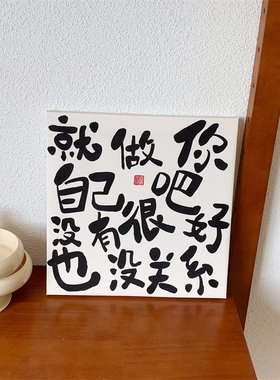 就做你
自己吧
没有很好
也没关系